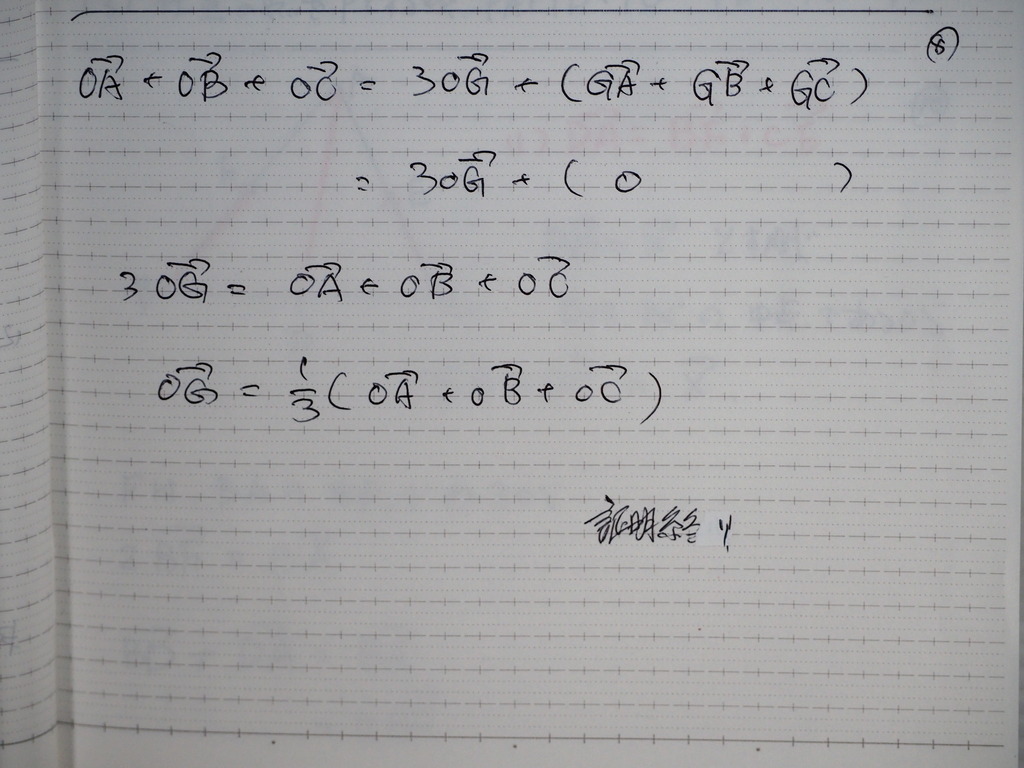 ⑧
OA⃗ + OB⃗ + OC⃗ = 3OG⃗ + (GA⃗ + GB⃗ + GC⃗)
= 3OG⃗ + ( 0 )
3 OG⃗ = OA⃗ + OB⃗ + OC⃗
OG⃗ = 1/3 ( OA⃗ + OB⃗ + OC⃗ )
証明終り